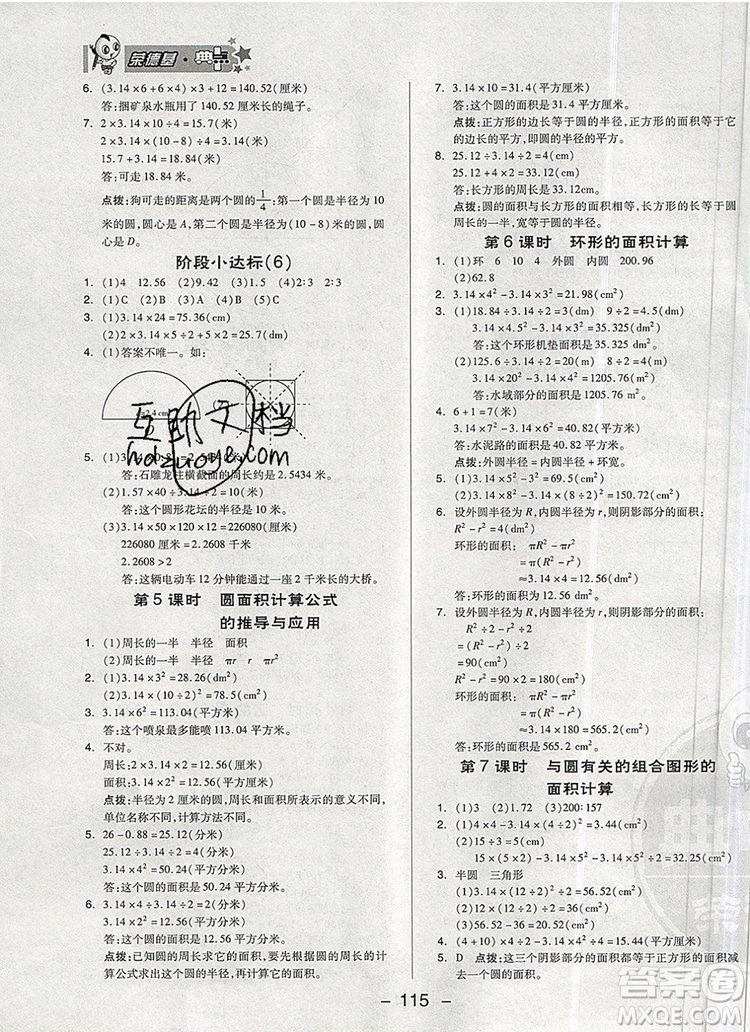 荣德基·典中点
6. (3.14×6+6×4)×4=140.52(厘米)
答:捆矿泉水瓶用了140.52厘米长的绳子。
7. 2×3.14×10÷4=15.7(米)
2×3.14×(10-8)÷4=3.14(米)
15.7+3.14=18.84(米)
答:可走18.84米。
点拨:狗可走的距离是两个圆的1/4:第一个圆是半径为10
米的圆,圆心是A,第二个圆是半径为(10-8)米的圆,
圆心是D。
阶段小达标(6)
1. (1)4 12.56 (2)9.42 (3)1.5 (4)2:3 2:3
2. (1)C (2)B (3)A
3. (1)3.14×24=75.36(cm)
(2)2×3.14×5÷2+5×2=25.7(dm)
4. (1)答案不唯一。如:
d=2.4 cm
互助文档
hdzuoye.com
答:石雕龙柱横截面的周长约是2.5434米。
(2)1.57×40÷3.14÷2=10(米)
答:这个圆形花坛的半径是10米。
(3)3.14×50×120×12=226080(厘米)
226080厘米=2.2608千米
2.2608>2
答:这辆电动车12分钟能通过一座2千米长的大桥。
第5课时 圆面积计算公式
的推导与应用
1. (1)周长的一半 半径 面积
(2)周长的一半 半径 πr r πr²
2. (1)3.14×3²=28.26(dm²)
(2)3.14×(10÷2)²=78.5(cm²)
3. 3.14×6²=113.04(平方米)
答:这个喷泉最多能喷113.04平方米。
4. 不对。
周长:2×3.14×2=12.56(厘米)
面积:3.14×2²=12.56(平方厘米)
点拨:半径为2厘米的圆的周长和面积的意义不同,
单位名称不同,计算方法不同。
5. 26-0.88=25.12(分米)
25.12÷3.14÷2=4(分米)
3.14×4²=50.24(平方分米)
答:这个圆的面积是50.24平方分米。
6. 12.56÷3.14÷2=2(分米)
3.14×2²=12.56(平方分米)
答:这个圆的面积是12.56平方分米。
点拨:已知圆的周长求它的面积,要先根据圆的周长的计
算公式求出这个圆的半径,再计算它的面积。
7. 3.14×10=31.4(平方厘米)
答:这个圆的面积是31.4平方厘米。
点拨:正方形的边长等于圆的半径,正方形的面积等于它
的边长的平方,即圆的半径的平方。
8. 25.12÷3.14÷2=4(cm)
25.12+4×2=33.12(cm)
答:长方形的周长是33.12cm。
点拨:圆的面积与长方形的面积相等,长方形的长等于圆
周长的一半,宽等于圆的半径。
第6课时 环形的面积计算
1. (1)环 6 10 4 外圆 内圆 200.96
(2)62.8
2. 3.14×4²-3.14×3²=21.98(cm²)
3. (1)18.84÷3.14÷2=3(dm) 9÷2=4.5(dm)
3.14×4.5²-3.14×3²=35.325(dm²)
答:这个环形机垫面积是35.325dm²。
(2)125.6÷3.14÷2=20(m) 8÷2=4(m)
3.14×20²-3.14×4²=1205.76(m²)
答:水域部分的面积是1205.76m²。
4. 6+1=7(米)
3.14×7²-3.14×6²=40.82(平方米)
答:水泥路的面积是40.82平方米。
点拨:外圆半径=内圆半径+环宽。
5. (1)3.14×5²-3²=69.5(cm²)
(2)3.14×8²-3.14×(8÷2)²=150.72(cm²)
6. 设外圆半径为R,内圆半径为r,则阴影部分的面积:
R²-r²=4(cm²)
环形的面积: πR²-πr²
=π(R²-r²)
≈3.14×4=12.56(cm²)
答:环形的面积是12.56cm²。
7. 设外圆半径为R,内圆半径为r,则阴影部分的面积:
R²÷2-r²÷2
=(R²-r²)÷2
=90(cm²)
R²-r²=90×2=180(cm²)
环形的面积: πR²-πr²
=π(R²-r²)
≈3.14×180=565.2(cm²)
答:环形的面积是565.2cm²。
第7课时 与圆有关的组合图形的
面积计算
1. (1)3 (2)1.72 (3)200:157
2. (1)4×4-3.14×(4÷2)²=3.44(cm²)
(2)15÷3=5(cm)
15×(5×2)-3.14×5²×3÷2=32.25(cm²)
3. 半圆 三角形
(1)3.14×(2÷2)²÷2=1.57(cm²)
(2)2×(2÷2)÷2=1(cm²)
(3)1.57-1=0.57(cm²)
4. (4+10)×4÷2-3.14×4²÷4=15.44(cm²)
5. D 点拨:这三个阴影部分的面积都是正方形的面积减
去一个圆的面积。
- 115 -
答案圈
MXQE.COM